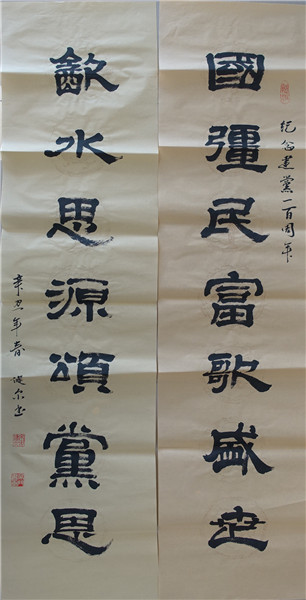 紀念建黨一百周年
國彊民富歌盛世
㱃水思源頌黨恩
辛丑年春